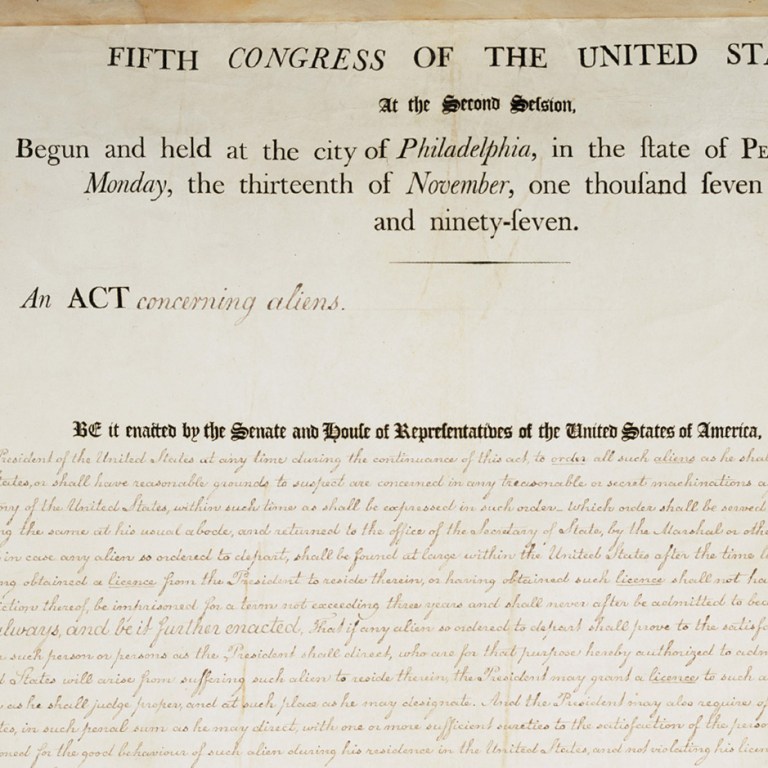 FIFTH CONGRESS OF THE UNITED STA
At the Second Seſsion,
Begun and held at the city of Philadelphia, in the ſtate of PE
Monday, the thirteenth of November, one thouſand ſeven
and ninety-ſeven.
An ACT concerning aliens.
BE it enacted by the Senate and Houſe of Repreſentatives of the United States of America,
President of the United States at any time during the continuance of this act, to order all such aliens as he shal
States, or shall have reasonable grounds to suspect are concerned in any treasonable or secret machinations a
ory of the United States, within such time as shall be expressed in such order. which order shall be served
ng the same at his usual abode, and returned to the office of the Secretary of State, by the Marshal or othe
in case any alien so ordered to depart, shall be found at large within the United States after the time l
ng obtained a licence from the President to reside therein, or having obtained such licence shall not ha
iction thereof, be imprisoned for a term not exceeding three years and shall never after be admitted to bec
always, and be it further enacted, that if any alien so ordered to depart shall prove to the satisfa
r such person or persons as the President shall direct, who are for that purpose hereby authorized to adm
d States will arise from suffering such alien to reside therein, the President may grant a licence to such a
as he shall judge proper, and at such place as he may designate. And the President may also require of
tes, in such penal sum as he may direct, with one or more sufficient sureties to the satisfaction of the perso
oned for the good behaviour of such alien during his residence in the United States, and not violating his licen